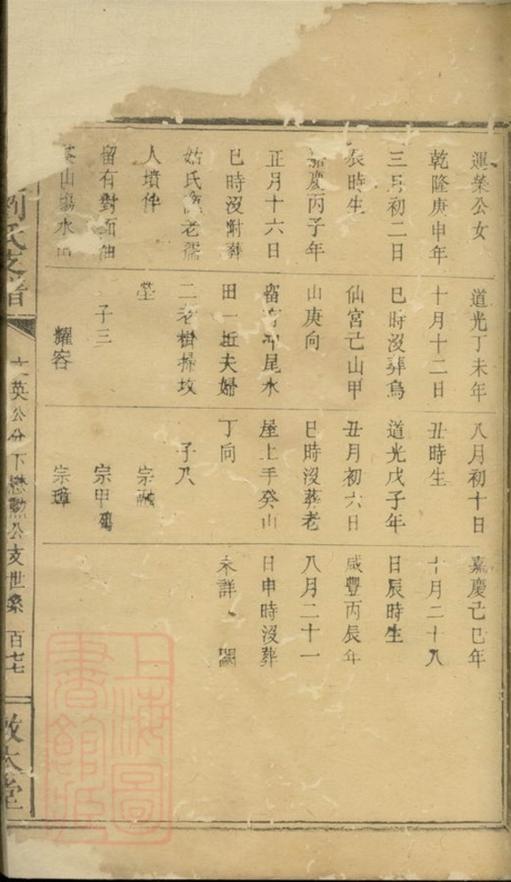 運榮公女
乾隆庚申年
三月初二日
辰時生
嘉慶丙子年
正月十六日
巳時沒附葬
姑氏老孺
人墳伴
留有對面油
山塲水
道光丁未年
十月十二日
巳時沒葬烏
仙宮亡山甲
山庚向
留有尾水
田一坵夫婦
二老樹掃坟
塋
子三
耀容
八月初十日
丑時生
道光戊子年
丑月初六日
巳時沒葬老
屋上手癸山
丁向
子八
宗
宗甲 殤
宗璋
嘉慶己巳年
十月二十八
日辰時生
咸豐丙辰年
八月二十一
日申時沒葬
未詳 闕
劉氏支譜
文英公分下懋勲公支世系 百七
敦本堂
上海圖書館藏